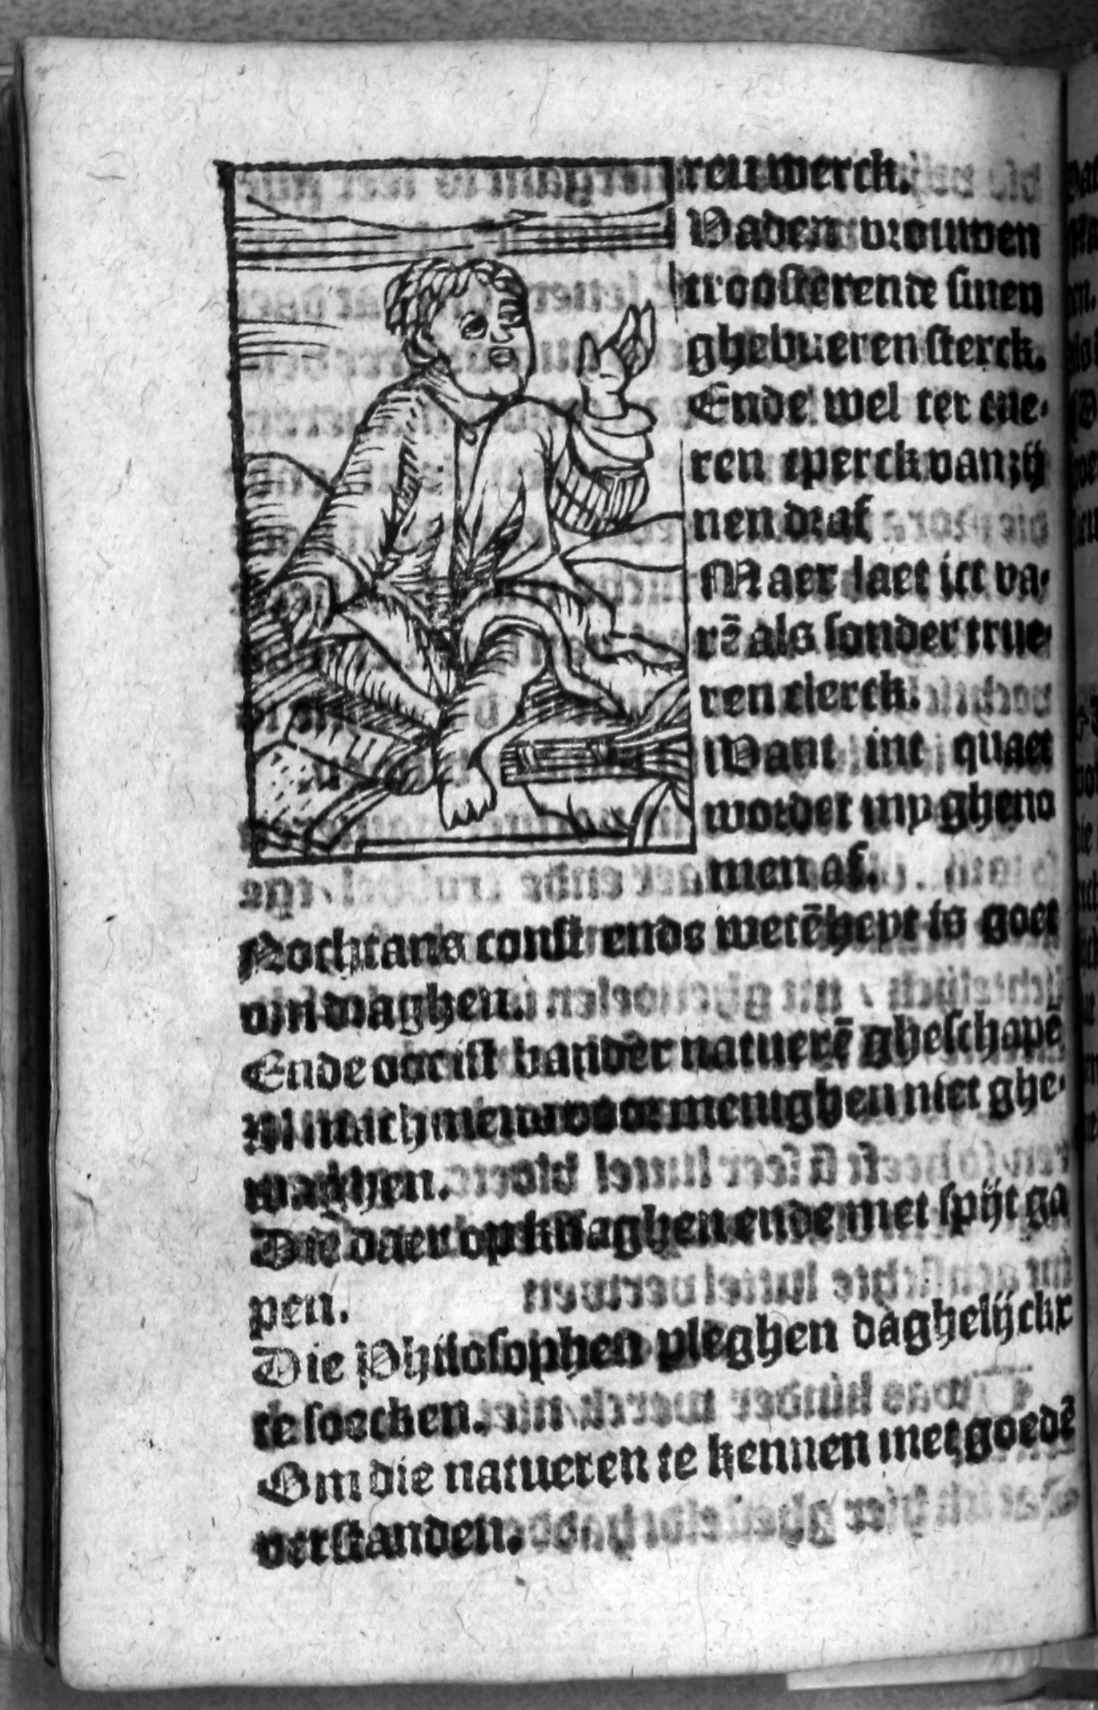 ren werck.
Vaden vrouwen
troosterende sinen
ghebueren sterck.
Ende wel ter eue-
ren tperck van zij
nen draf
Maer laet ict va-
rē als sonder true
ren clerck.
Want int quaet
wordet my gheno
men af.
Nochtans const ende wetēheyt is goet
om draghen.
Ende oor ist vander naturē gheschapē
men voor menighen niet ghe-
waghen.
Die daer op knaghen ende met spijt ga
pen.
Die Philosophen pleghen daghelijckx
te soecken.
Om die natueren te kennen met goedē
verstanden.